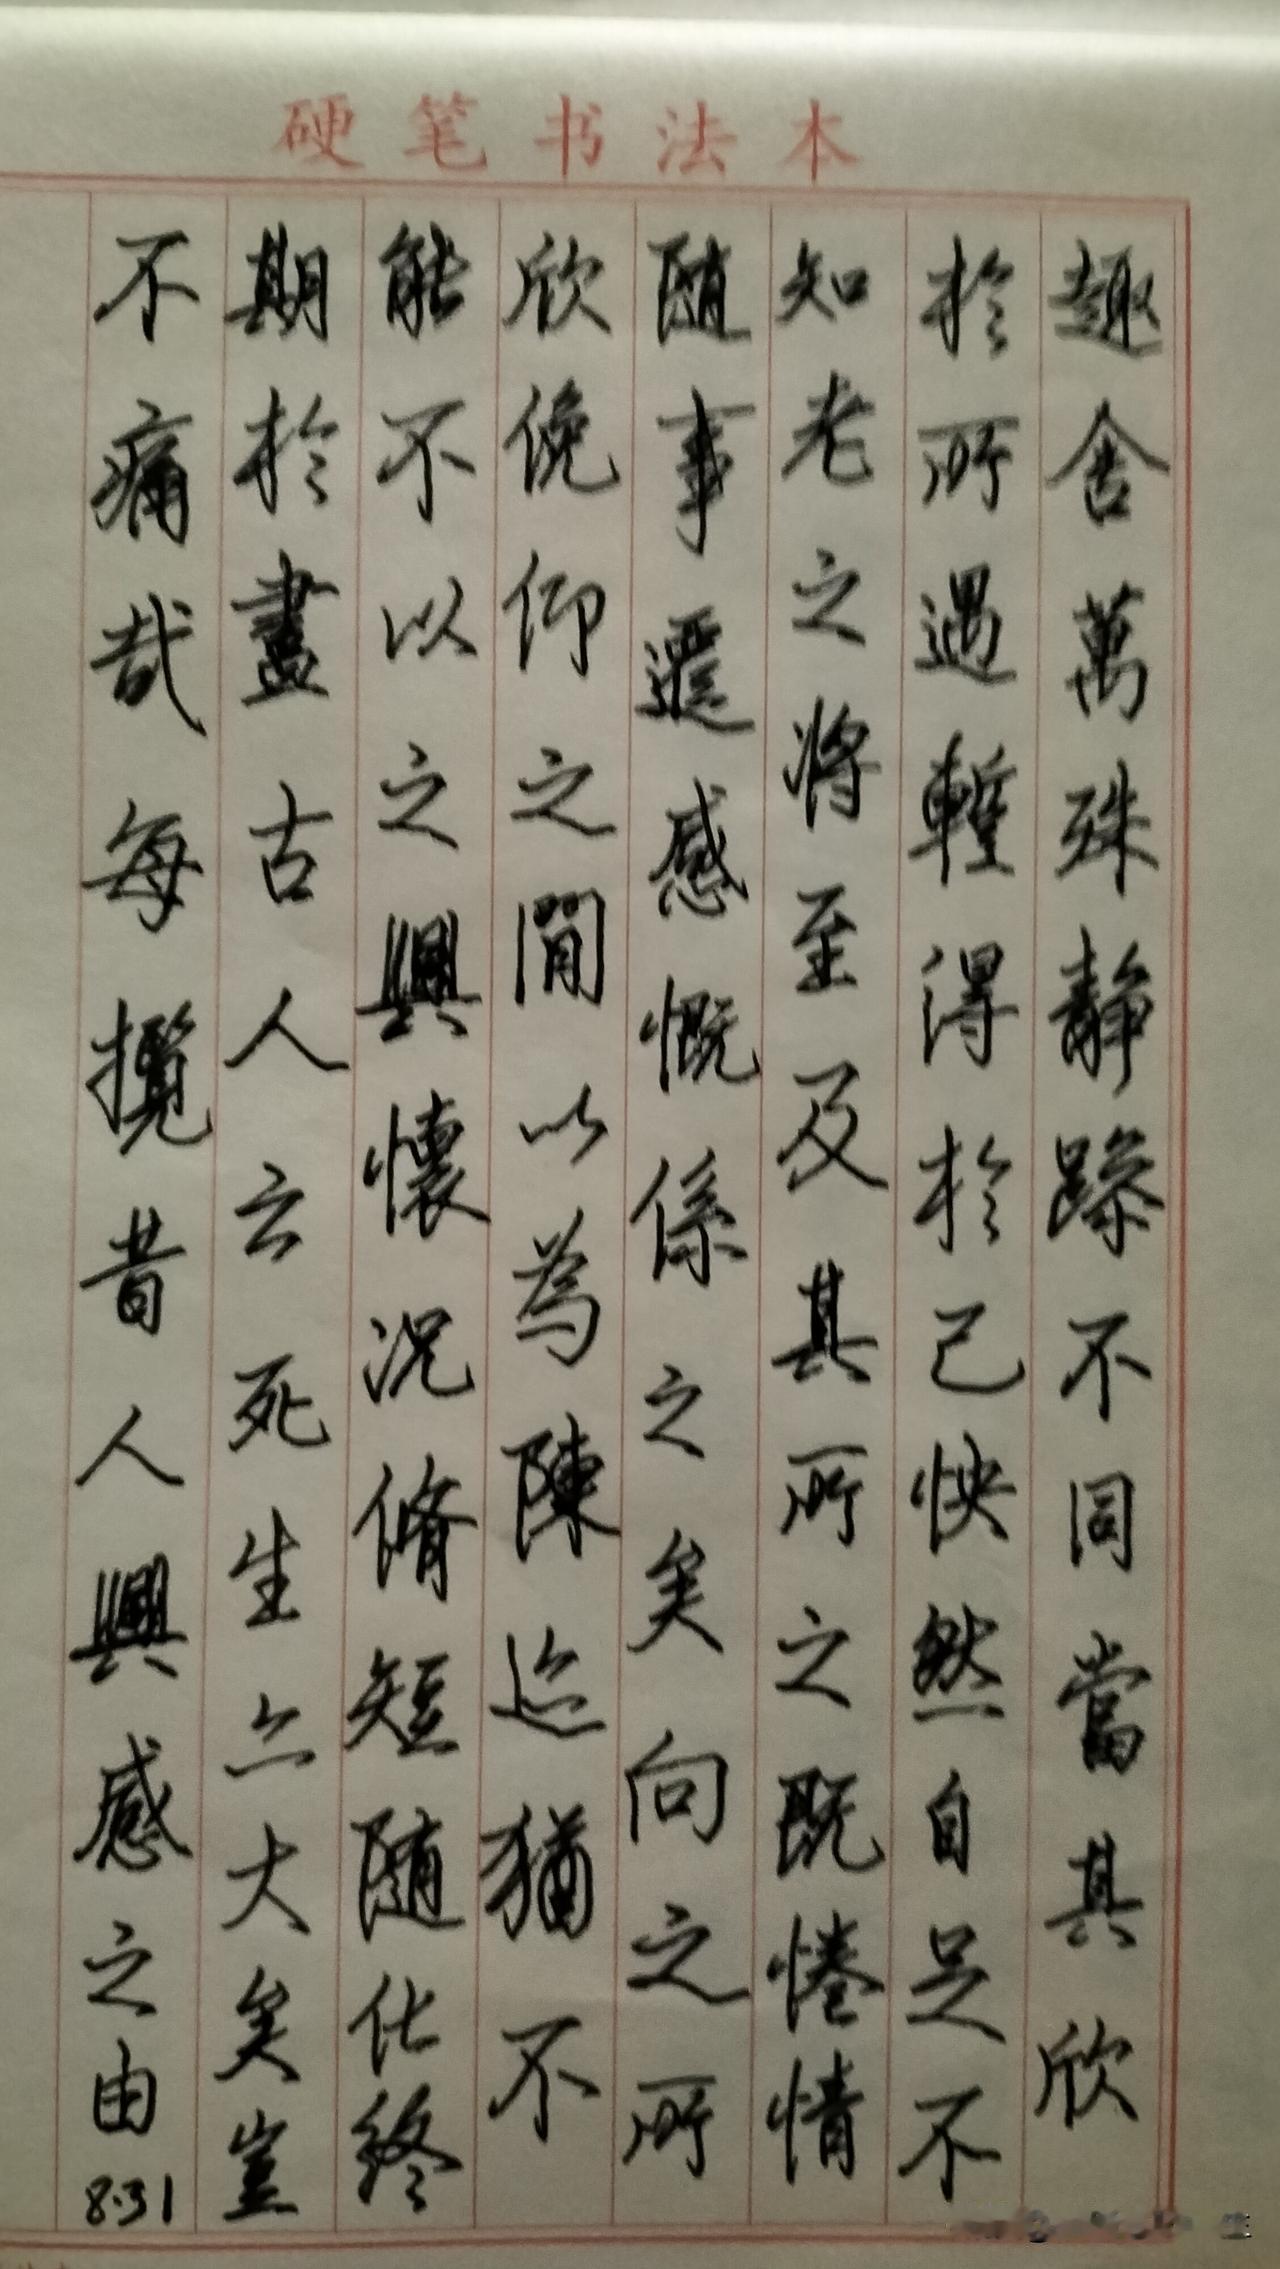 硬笔书法本
趣舍萬殊靜躁不同當其欣
於所遇暫得於己怏然自足不
知老之將至及其所之既惓情
隨事遷感慨係之矣向之所
欣俛仰之間以為陳迹猶不
能不以之興懷況脩短隨化終
期於盡古人云死生亦大矣豈
不痛哉每攬昔人興感之由
8.31
生